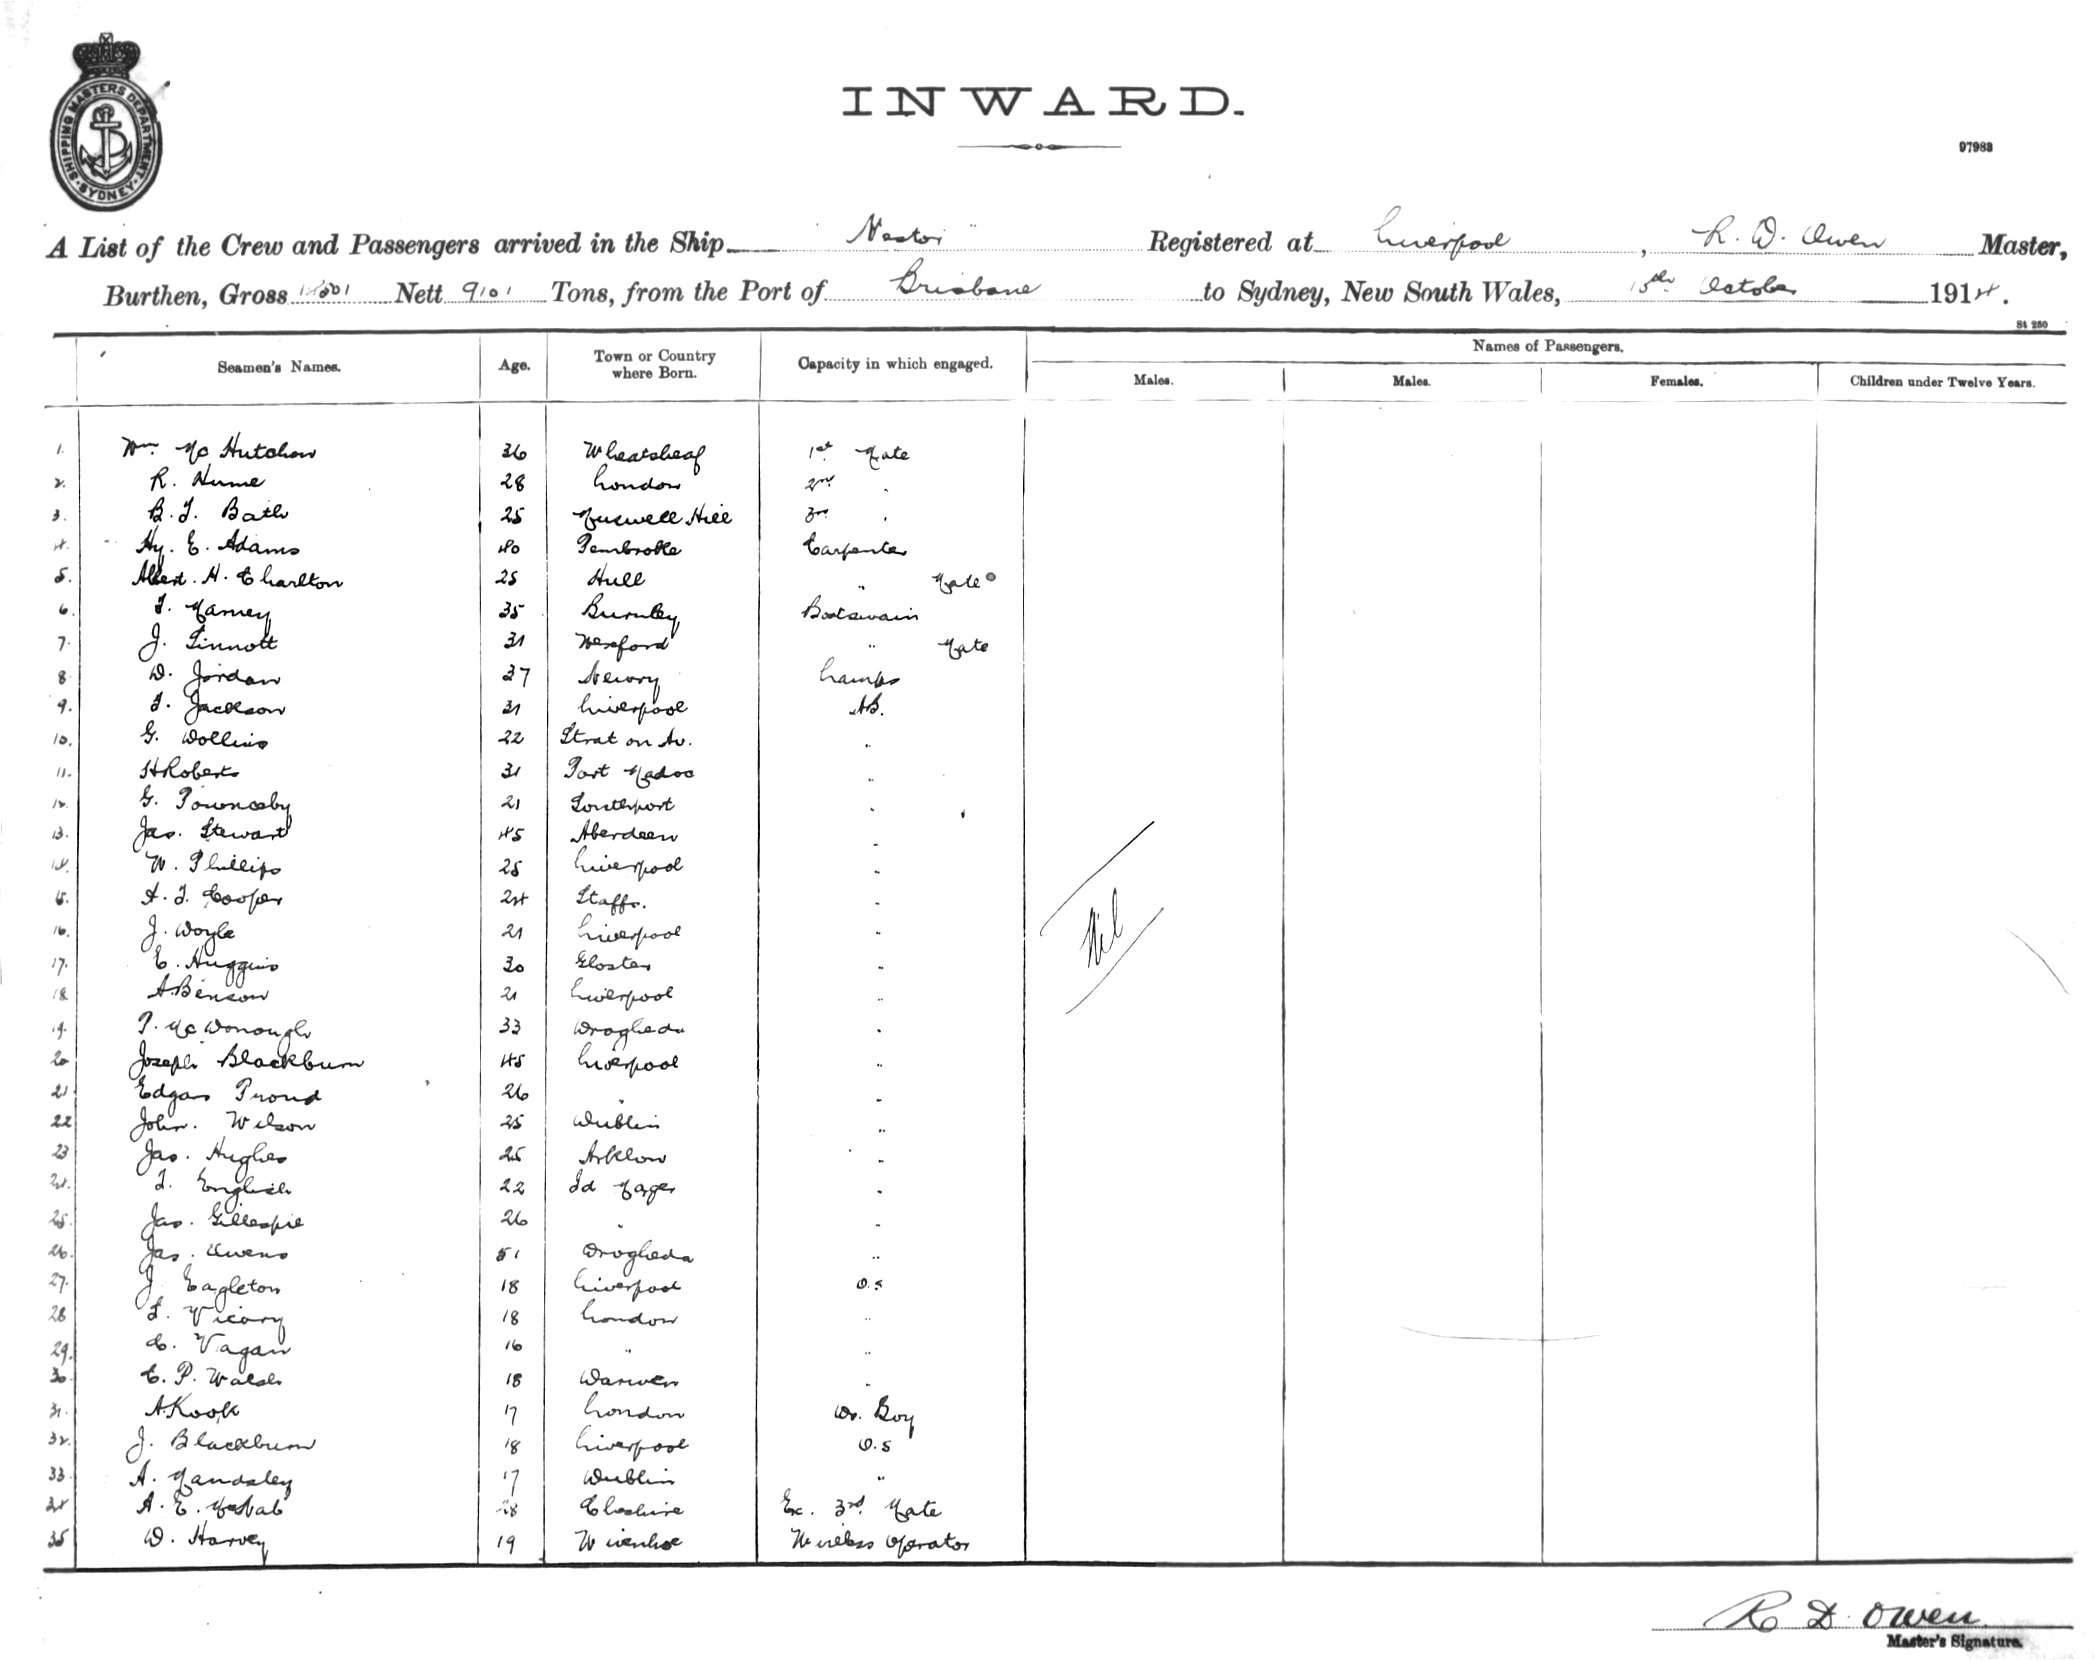 SHIPPING MASTERS DEPARTMENT
SYDNEY
INWARD.
97983
A List of the Crew and Passengers arrived in the Ship "Nestor" Registered at Liverpool, R. D. Owen Master,
Burthen, Gross Nett 9101 Tons, from the Port of Brisbane to Sydney, New South Wales, 15th October 1914.
St 250
Seamen's Names. Age. Town or Country where Born. Capacity in which engaged. Names of Passengers.
Males. Males. Females. Children under Twelve Years.
1. Wm. Mc Hutchon 36 Wheatsheaf 1st Mate
2. R. Hume 28 London 2nd "
3. B. J. Bath 25 Muswell Hill 3rd "
4. Hy. E. Adams 40 Pembroke Carpenter
5. Albert. H. Charlton 25 Hull " Mate
6. 35 Burnley Boatswain
7. J. Sinnott 31 Wexford " Mate
8. D. Jordan 37 Newry Lamps
9. J. Jackson 31 Liverpool AB.
10. G. Dollins 22 Strat on Av. "
11. H Roberts 31 Port Madoc "
12. G. Pounceby 21 Southport "
13. Jas. Stewart 45 Aberdeen "
14. W. Phillips 25 Liverpool "
15. A. J. Cooper 24 Staffs. "
16. J. Doyle 21 Liverpool "
17. E. Huggins 30 Gloster "
18 A. Benson 21 Liverpool "
19. P. Mc Donough 33 Drogheda "
20 Joseph Blackburn 45 Liverpool "
21 Edgar Proud 26 " "
22 John. Wilson 25 Dublin "
23 Jas. Hughes 25 Arklow "
24. J. English 22 Id Magee "
25. Jas. Gillespie 26 " "
26. Jas. Owens 51 Drogheda "
27. J. Eagleton 18 Liverpool O.S
28 Vicary 18 London "
29. C. Vagan 16 " "
30. C. P. Walsh 18 Darwen "
31. A. Kook 17 London Dk. Boy
32. J. Blackburn 18 Liverpool O.S
33. A. Mandsley 17 Dublin "
34 A. E. McNab 28 Cheshire Ex. 3rd. Mate
35 D. Harvey 19 Wivenhoe Wireless Operator
Nil
R D. Owen
Master's Signature.